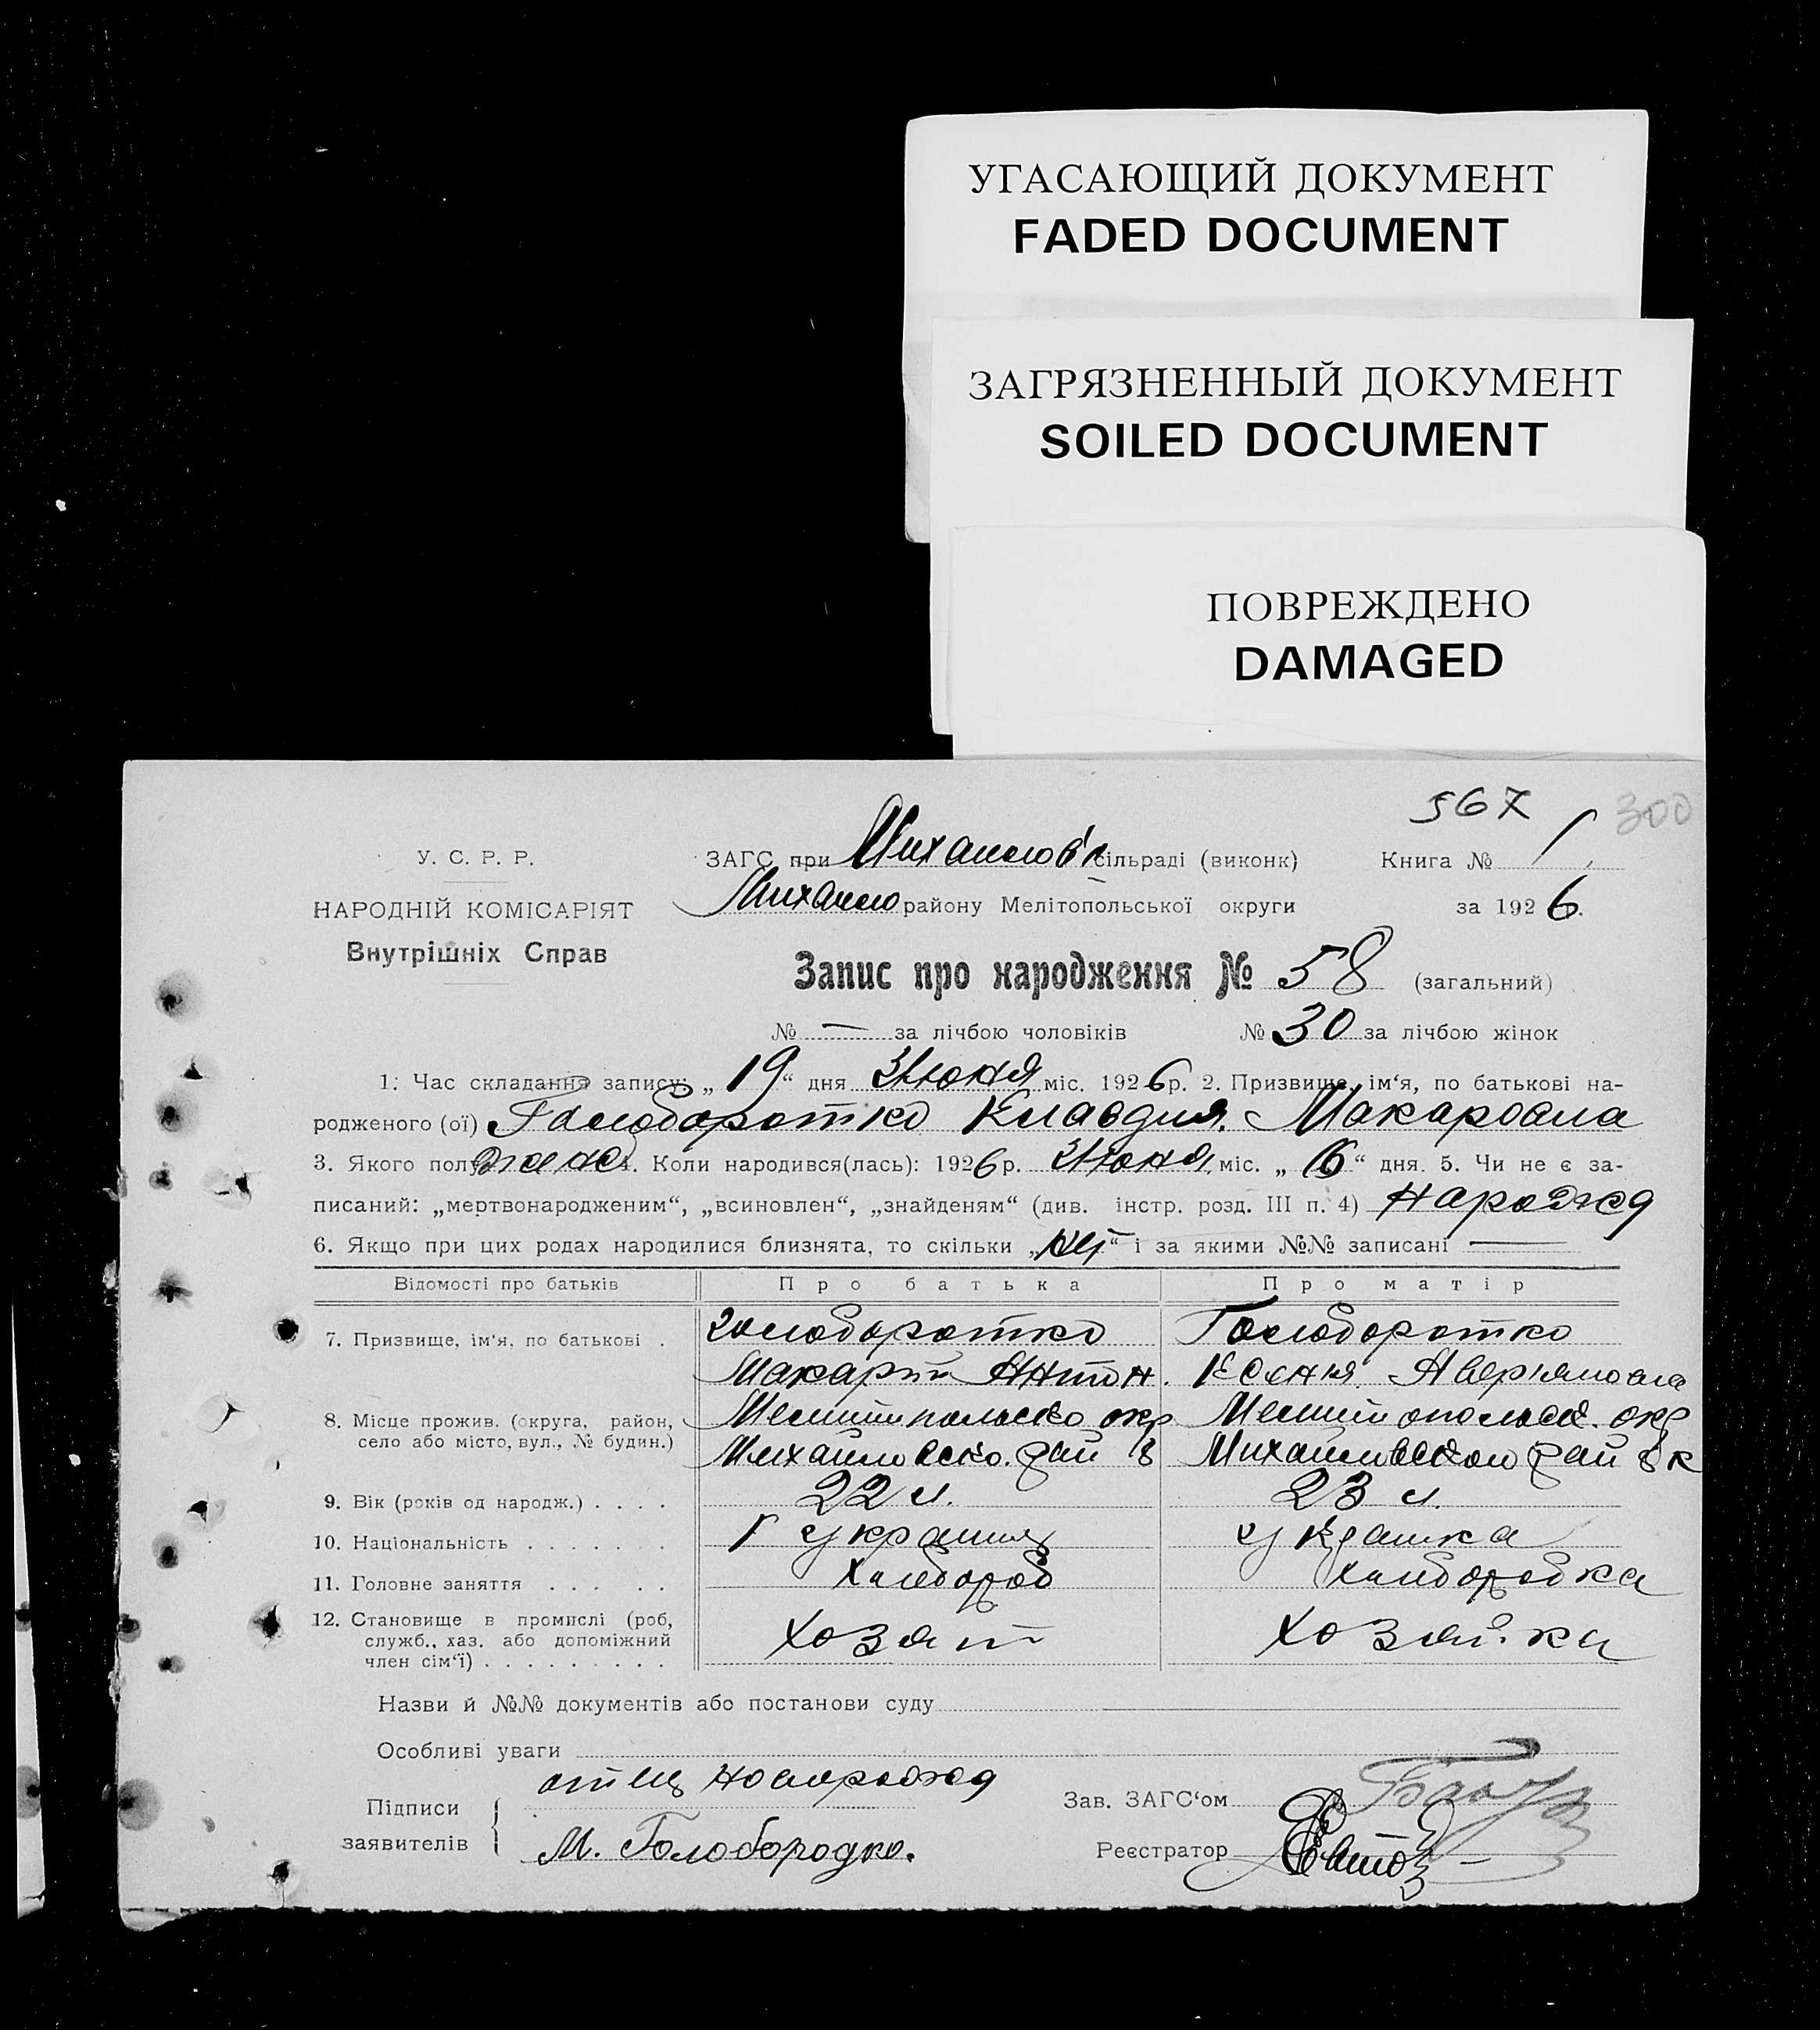 УГАСАЮЩИЙ ДОКУМЕНТ
FADED DOCUMENT
ЗАГРЯЗНЕННЫЙ ДОКУМЕНТ
SOILED DOCUMENT
ПОВРЕЖДЕНО
DAMAGED
567 300
У. С. Р. Р.
НАРОДНІЙ КОМІСАРІЯТ
Внутрішніх Справ
ЗАГС при Михайлов'к сільраді (виконк) Книга № 1
Михайло району Мелітопольської округи за 1926.
Запис про народження № 58 (загальний)
№ — за лічбою чоловіків № 30 за лічбою жінок
1. Час складання запису: „19“ дня Июня міс. 1926р. 2. Призвище, ім‘я, по батькові на-
родженого (ої) Голоборотко Клавдия. Макаровна
3. Якого полу 4. Коли народився(лась): 1926р. Июня міс. „16“ дня. 5. Чи не є за-
писаний: „мертвонародженим“, „всиновлен“, „знайденям“ (див. інстр. розд. III п. 4) народжд
6. Якщо при цих родах народилися близнята, то скільки „ “ і за якими №№ записані —
Відомості про батьків Про батька Про матір
7. Призвище, ім‘я, по батькові . голоборотко Голоборотко
Макарий Антон. Ксения Аверияновна
8. Місце прожив. (округа, район, Мелитопольско окр Мелитопольск. окр
село або місто, вул., № будин.) Михайловско. рай в Михайловском рай в к
9. Вік (років од народж.) . . . . 22 л. 23 л.
10. Національність . . . . . . . украинц украинка
11. Головне заняття . . . . . Хлебороб Хлеборобка
12. Становище в промислі (роб,
служб., хаз. або допоміжний Хозяин Хозяйка
член сім‘ї) . . . . . . . . .
Назви й №№ документів або постанови суду
Особливі уваги
отец
Підписи
заявителів
М. Голобородко.
Зав. ЗАГС‘ом
Реєстратор